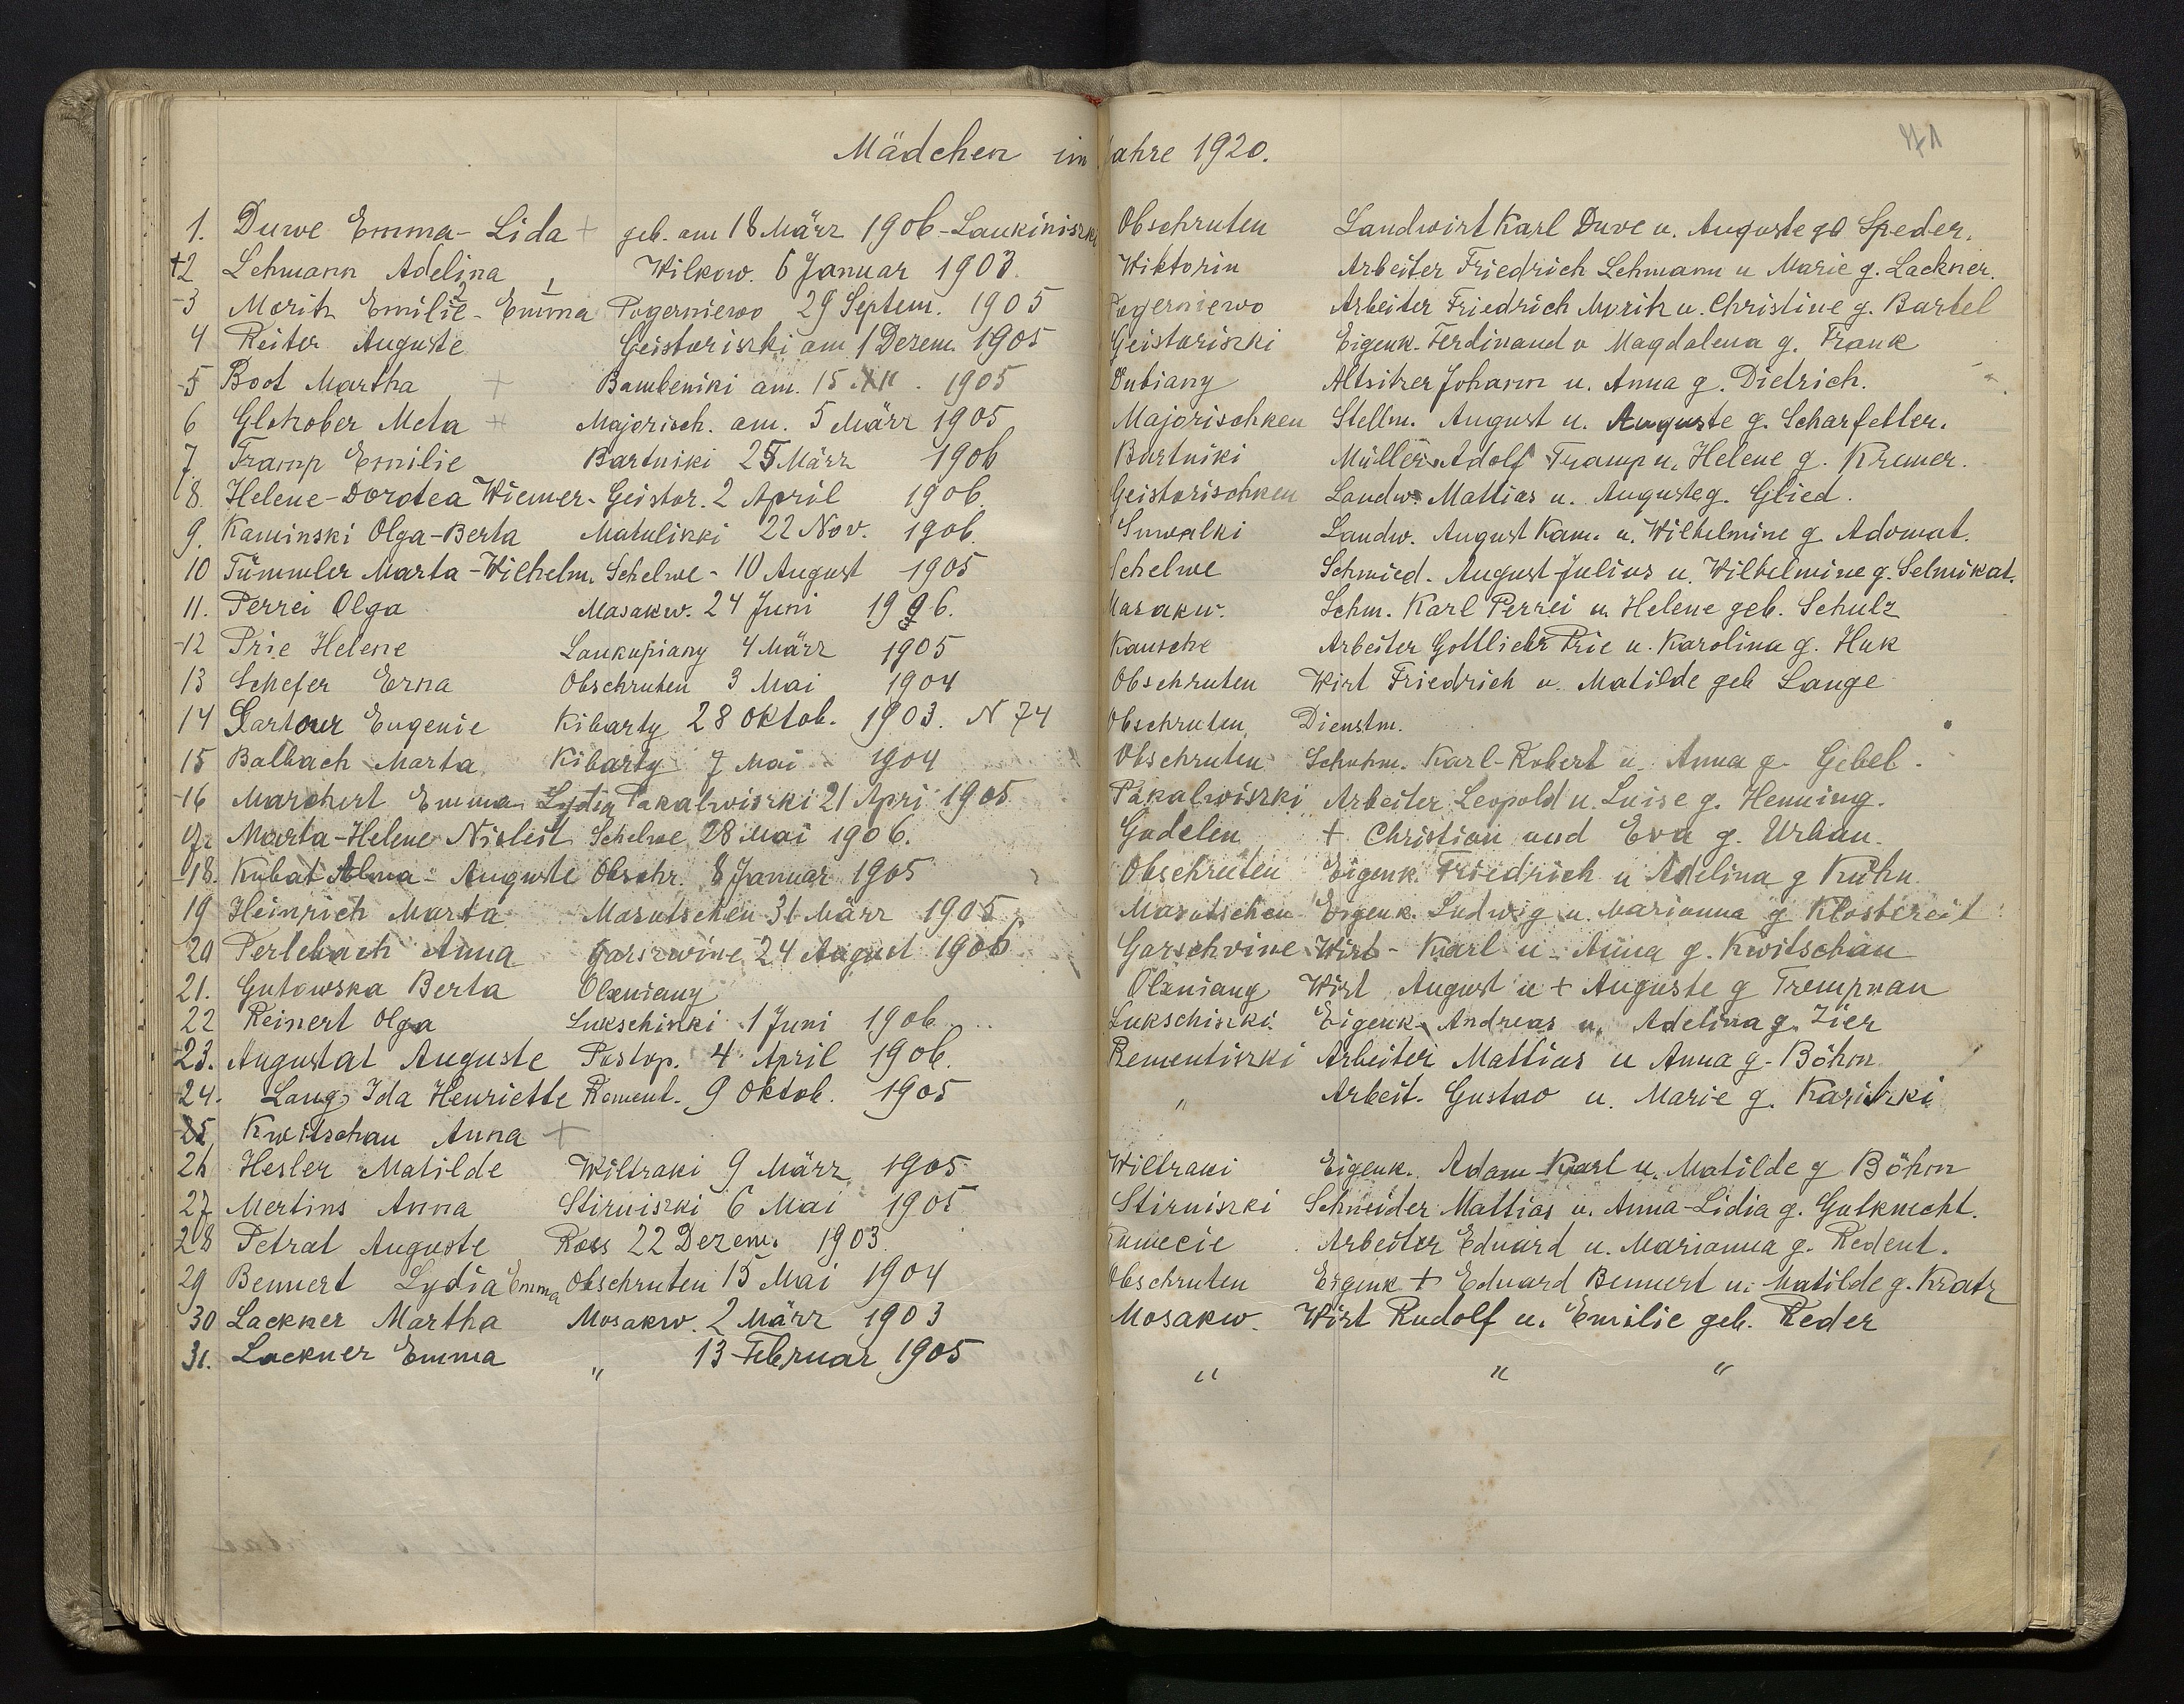 Mädchen im Jahre 1920.
71
1. Duwe Emma-Lida + geb. am 18 März 1906-Laukiniszki Obschruten Landwirt Karl Duve u. Auguste geb Speder.
+2 Lehmann Adelina Wilkow. 6 Januar 1903. Wiktorin Arbeiter Friedrich Lehmann u Marie g. Lackner.
-3 Moritz Emilie-Emma Pogerniewo 29 Septem. 1905 Pogerniewo Arbeiter Friedrich Moritz u. Christine g. Bartel
4 Reiter Auguste Geistariszki am 1 Dezem. 1905 Geistariszki Eigenk. Ferdinand u Magdalena g. Frank
-5 Boot Martha + Bambeniki am. 15 XII. 1905 Dubiany Altsitzer Johann u. Anna g. Dietrich.
6 Glohober Meta + Majorisch. am. 5 März 1905 Majorischken Stellm. August u. Auguste g. Scharfetter.
7. Tramp Emilie Bartniki 25 März 1906 Bartniki Müller Adolf Tramp u. Helene g. Kremer.
8. Helene-Dorotea Wiemer. Geistar. 2 April 1906. Geistarischken Landw. Mattias u. Auguste g. Glied.
9. Kaminski Olga-Berta Matulizki 22 Nov. 1906. Suwalki Landw. August Kam. u. Wilhelmine g Adomat.
10 Tümmler Marta-Wilhelm. Schelwe - 10 August 1905 Schelwe Schmied. August Julius u. Wilhelmine g. Selmikat.
11. Perrei Olga Masakw. 24 Juni 1906. Masakw. Schm. Karl Perrei u. Helene geb. Schulz
-12 Prie Helene Laukupiany 4 März 1905 Kausche Arbeiter Gottlieb Prie u. Karolina g. Huk
13 Schefer Erna Obschruten 3 Mai 1904 Obschruten Wirt Friedrich u. Matilde geb Lange
14 Sartour Eugenie Kibarty 28 Oktob. 1903. N 74 Obschruten Dienstm.
15 Balbach Marta Kibarty 7 Mai 1904 Obschruten Schuhm. Karl-Robert u. Anna g. Gebel.
-16 Marchert Emma-Lydia Pakalwiszki 21 Apri 1905 Pakalwiszki Arbeiter Leopold u. Luise g. Henning.
17. Marta-Helene Nisleit Schelwe 28 Mai 1906. Gudelen + Christian und Eva g. Urban.
-18. Kubat Alma-Auguste Obschr. 8 Januar 1905 Obschruten Eigenk. Friedrich u Adelina g Kühn.
19 Heinrich Marta Masutschen 31 März 1905 Masutschen Eigenk. Ludwig u. Marianna g Klostereit
20 Perlebach Anna Garszwine 24 August 1906 Garschvine Wirt - Karl u. Anna g. Kwitschau
21. Gutowska Berta Olxniany Olxniany Wirt August u + Auguste g Trempnau
22 Reinert Olga Lukschiszki 1 Juni 1906 Lukschiszki. Eigenk. Andreas u. Adelina g. Zier
23. Augustat Auguste Postop. 4 April 1906. Rementiszki Arbeiter Mattias u Anna g. Böhm
24. Lang Ida Henriette Rement. 9 Oktob. 1905 " Arbeit. Gustav u. Marie g. Karitzki
25. Kwitschau Anna +
26 Hesler Matilde Wiltraki 9 März 1905 Wiltraki Eigenk. Adam Karl u. Matilde g Böhm
27 Mertins Anna Stirniszki 6 Mai 1905 Stirniszki Schneider Mattias u. Anna-Lidia g. Gutknecht.
28 Petrat Auguste Ross 22 Dezem. 1903. Arbeiter Eduard u. Marianna g. Redent.
29 Bennert Lydia Emma Obschruten 15 Mai 1904 Obschruten Eigenk + Eduard Bennert u. Matilde g. Kratz
30 Lackner Martha Mosakw. 2 März 1903 Mosakw. Wirt Rudolf u. Emilie geb. Reder
31. Lackner Emma " 13 Februar 1905 " " "